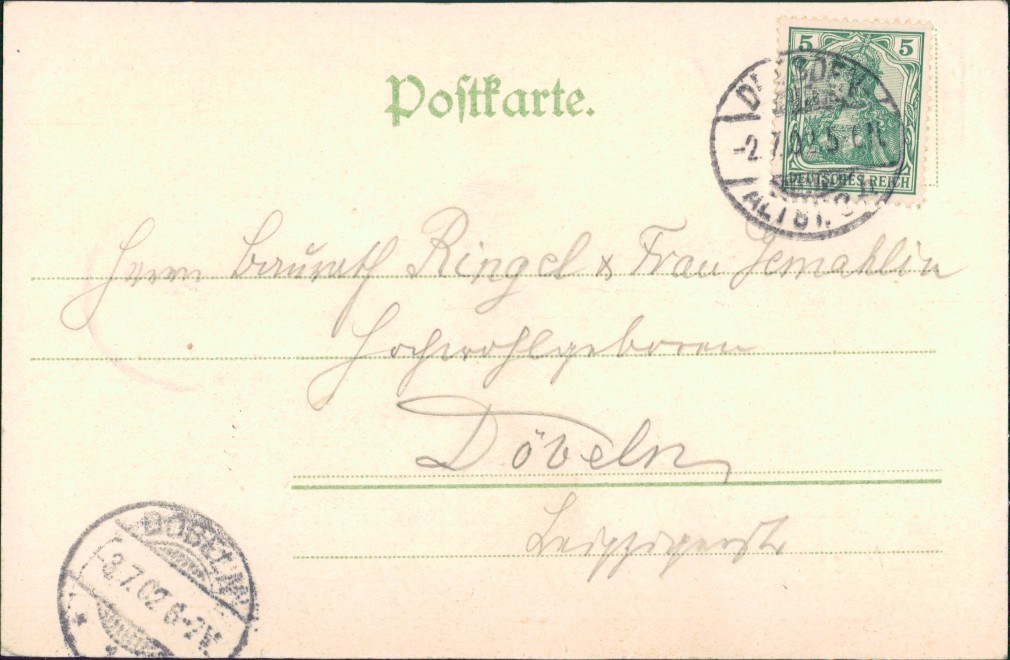 Postkarte.
5 5
DEUTSCHES REICH
DRESDEN
ALTST.
-2.7.02.5-6N
Herrn Baurath Ringel & Frau Gemahlin
Hochwohlgeboren
Döbeln
Leipzigerstr
DÖBELN
3.7.02 6-7V